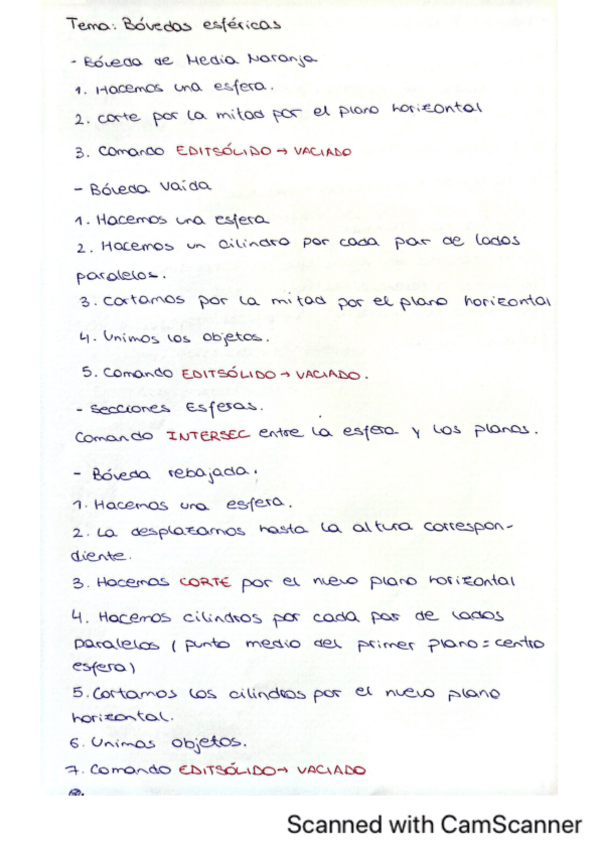 Tema: Bóvedas esféricas
- Bóveda de Media Naranja
1. Hacemos una esfera.
2. corte por la mitad por el plano horizontal
3. Comando EDITSÓLIDO → VACIADO
- Bóveda Vaída
1. Hacemos una esfera
2. Hacemos un cilindro por cada par de lados
paralelos.
3. Cortamos por la mitad por el plano horizontal
4. Unimos los objetos.
5. Comando EDITSÓLIDO → VACIADO.
- Secciones Esferas.
Comando INTERSEC entre la esfera y los planos.
- Bóveda rebajada.
1. Hacemos una esfera.
2. La desplazamos hasta la altura correspon-
diente.
3. Hacemos CORTE por el nuevo plano horizontal
4. Hacemos cilindros por cada par de lados
paralelos (punto medio del primer plano = centro
esfera)
5. Cortamos los cilindros por el nuevo plano
horizontal.
6. Unimos objetos.
7. Comando EDITSÓLIDO → VACIADO
Scanned with CamScanner